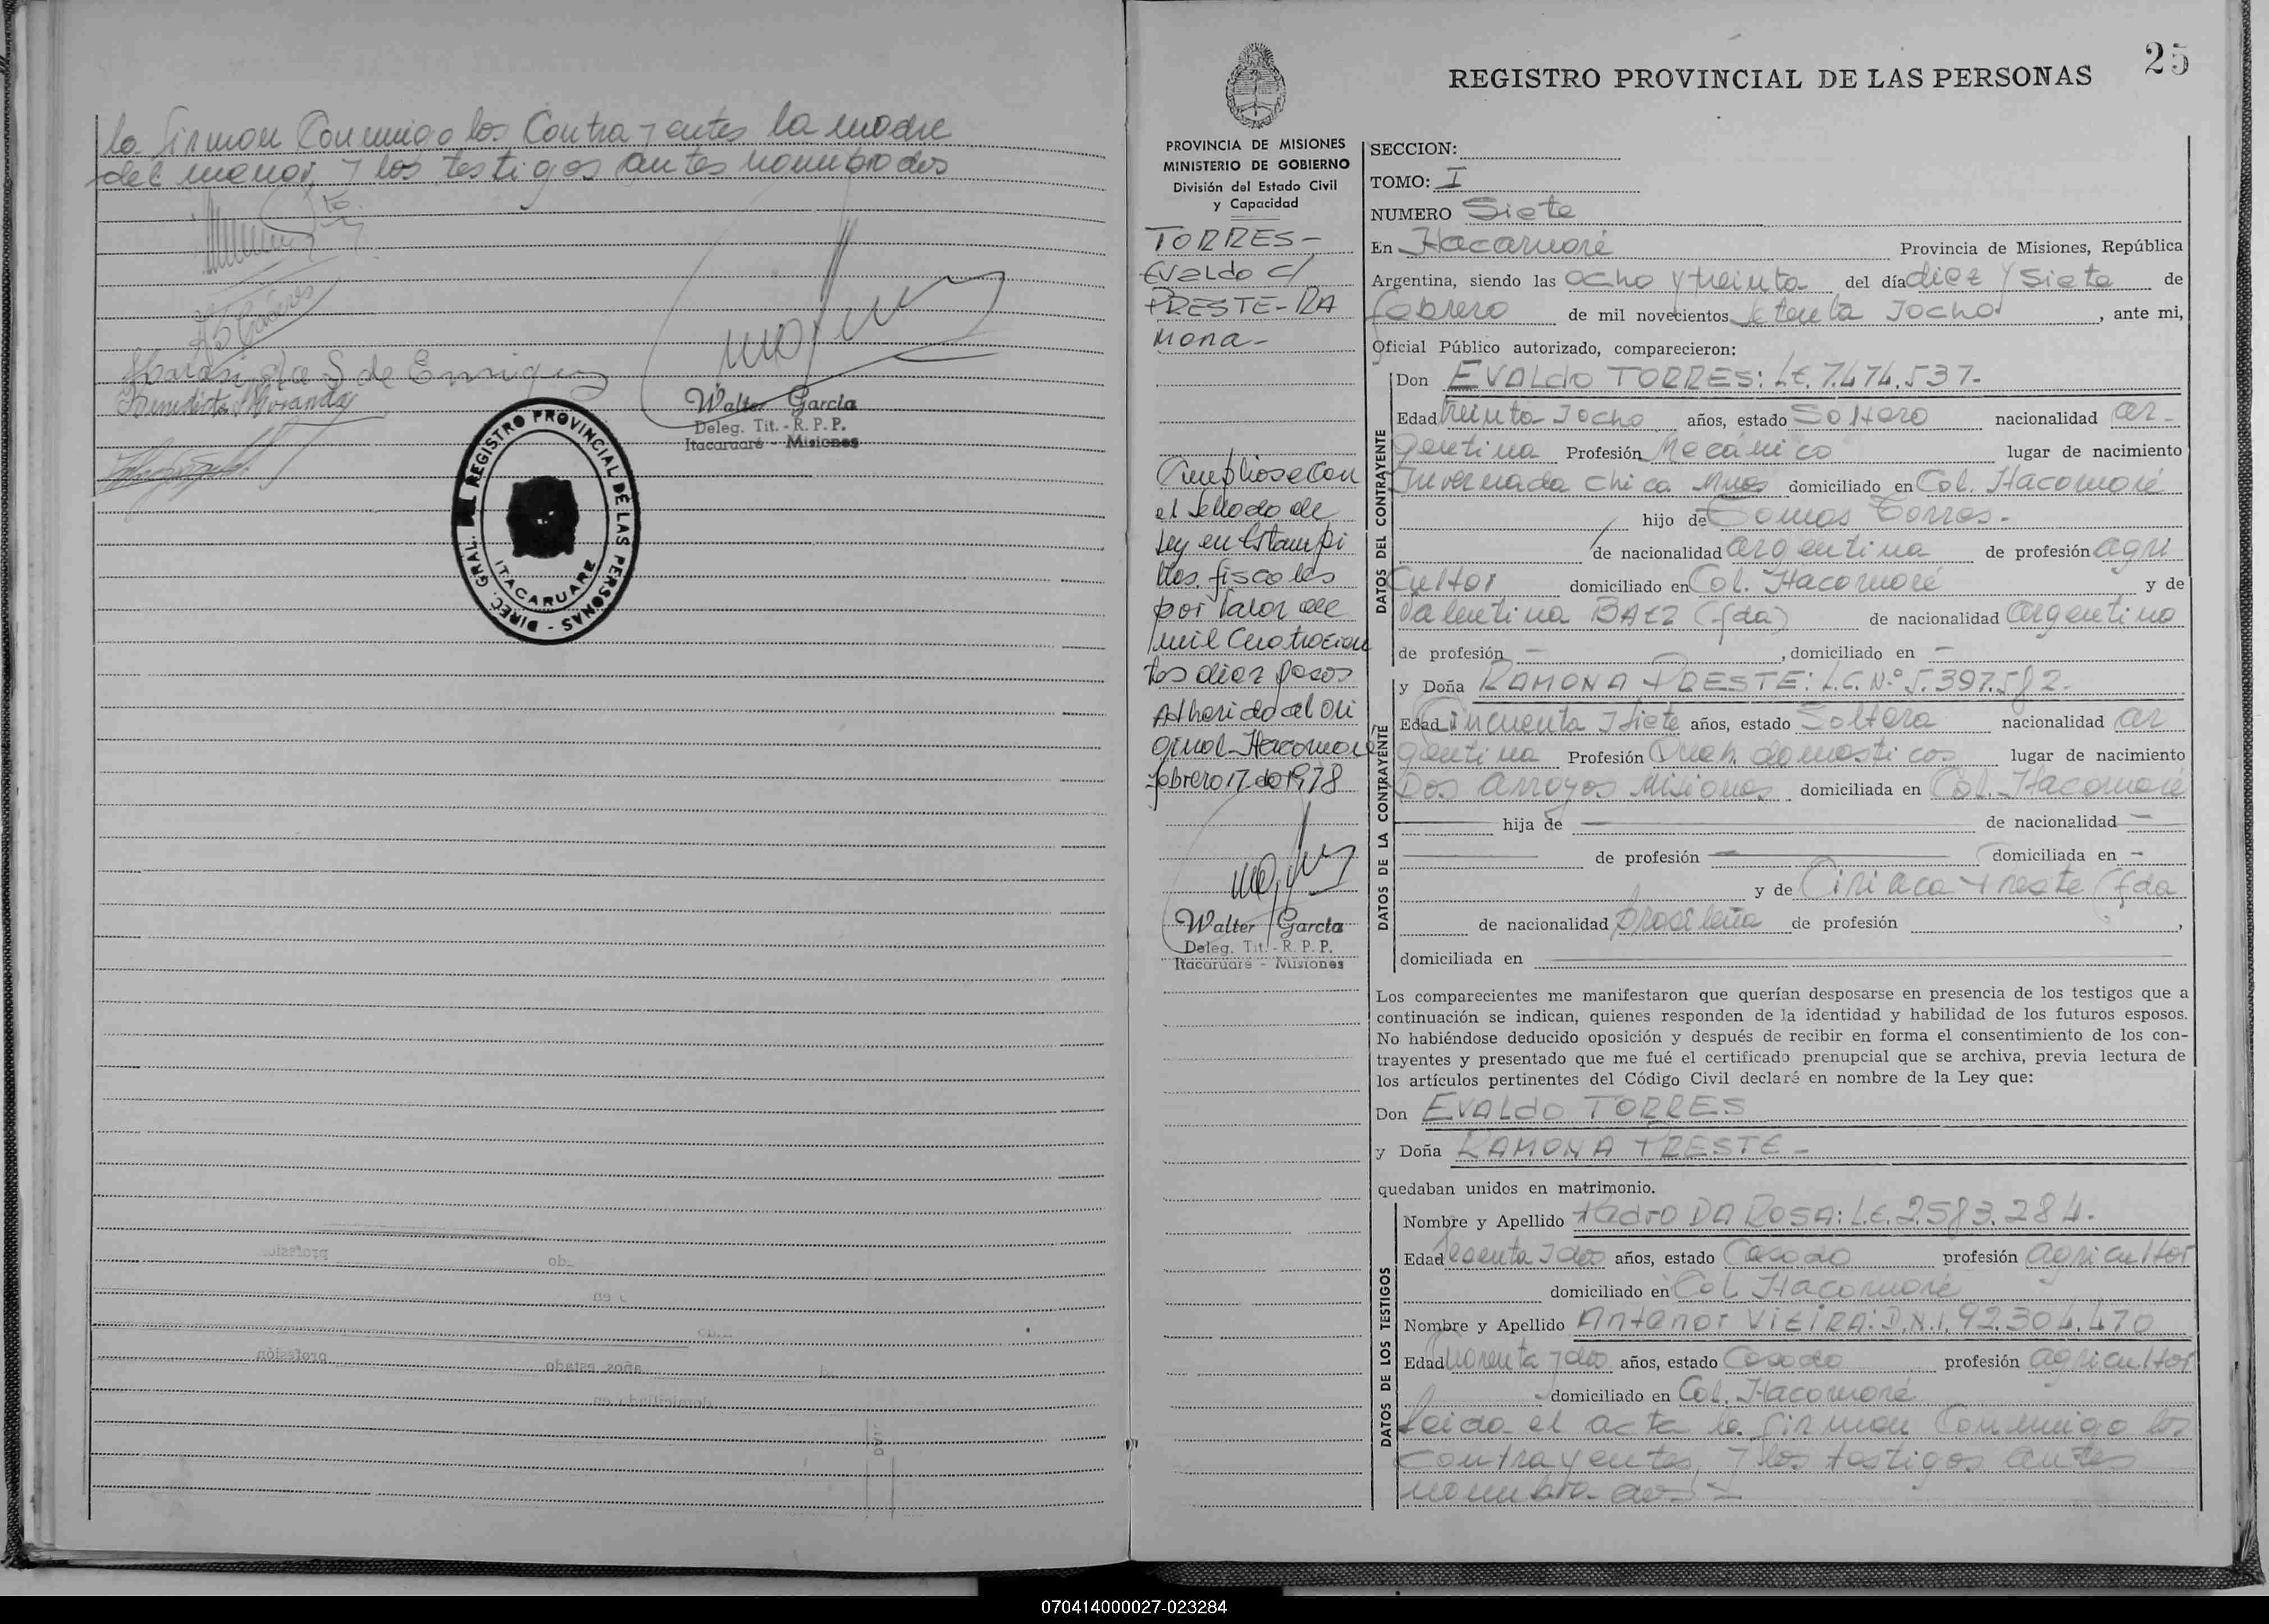 la firman Conmigo los Contrayentes la madre
del menor, y los testigos antes nombrados
Walter García
Deleg. Tit. - R. P. P.
Itacaruaré - Misiones
DIREC. GRAL. DEL REGISTRO PROVINCIAL DE LAS PERSONAS -
ITACARUARE
25
REGISTRO PROVINCIAL DE LAS PERSONAS
PROVINCIA DE MISIONES
MINISTERIO DE GOBIERNO
División del Estado Civil
y Capacidad
TORRES-
Evaldo c/
PRESTE-RA
mona-
Cumpliose con
el sellado de
Ley en Estampi
llas fiscales
por valor de
mil cuatrocien
tos diez pesos
Adherido al ori
ginal-Itacaruaré
febrero 17 de 1978
Walter García
Deleg. Tit. - R. P. P.
Itacaruaré - Misiones
SECCION:
TOMO: I
NUMERO Siete
En Itacaruaré Provincia de Misiones, República
Argentina, siendo las ocho y treinta del día diez y siete de
febrero de mil novecientos setenta y ocho, ante mi,
Oficial Público autorizado, comparecieron:
DATOS DEL CONTRAYENTE
Don EVALDO TORRES: L.E. 7.474.537-
Edad treinta y ocho años, estado Soltero nacionalidad ar-
gentina Profesión Mecánico lugar de nacimiento
Invernada Chica Mnes domiciliado en Col. Itacaruaré
hijo de Tomas Torres.
de nacionalidad argentina de profesión agri
cultor domiciliado en Col. Itacaruaré y de
Valentina BAEZ (fda) de nacionalidad argentina
de profesión - , domiciliado en -
DATOS DE LA CONTRAYENTE
y Doña RAMONA PRESTE: L.C. Nº 5.397.582-
Edad Cincuenta y siete años, estado Soltera nacionalidad ar
gentina Profesión Queh. domesticos lugar de nacimiento
Dos Arroyos Misiones domiciliada en Col. Itacaruaré
hija de de nacionalidad
de profesión domiciliada en -
y de Ciriaca Preste (fda
de nacionalidad brasileña de profesión ,
domiciliada en
Los comparecientes me manifestaron que querían desposarse en presencia de los testigos que a
continuación se indican, quienes responden de la identidad y habilidad de los futuros esposos.
No habiéndose deducido oposición y después de recibir en forma el consentimiento de los con-
trayentes y presentado que me fué el certificado prenupcial que se archiva, previa lectura de
los artículos pertinentes del Código Civil declaré en nombre de la Ley que:
Don EVALDO TORRES
y Doña RAMONA PRESTE-
quedaban unidos en matrimonio.
DATOS DE LOS TESTIGOS
Nombre y Apellido Pedro DA ROSA: L.E. 2.583.284-
Edad sesenta y dos años, estado Casado profesión agricultor
domiciliado en Col Itacaruaré
Nombre y Apellido Antenor VIEIRA: D.N.I. 92.304.470
Edad cuarenta y dos años, estado Casado profesión agricultor
domiciliado en Col. Itacaruaré
Leida el acta la firman Conmigo los
contrayentes, y los testigos antes
nombrados-
070414000027-023284